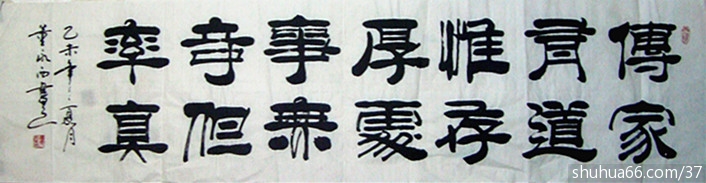 傳家
有道
惟存
厚處
事無
奇但
率真
乙未年夏月
shuhua66.com/37